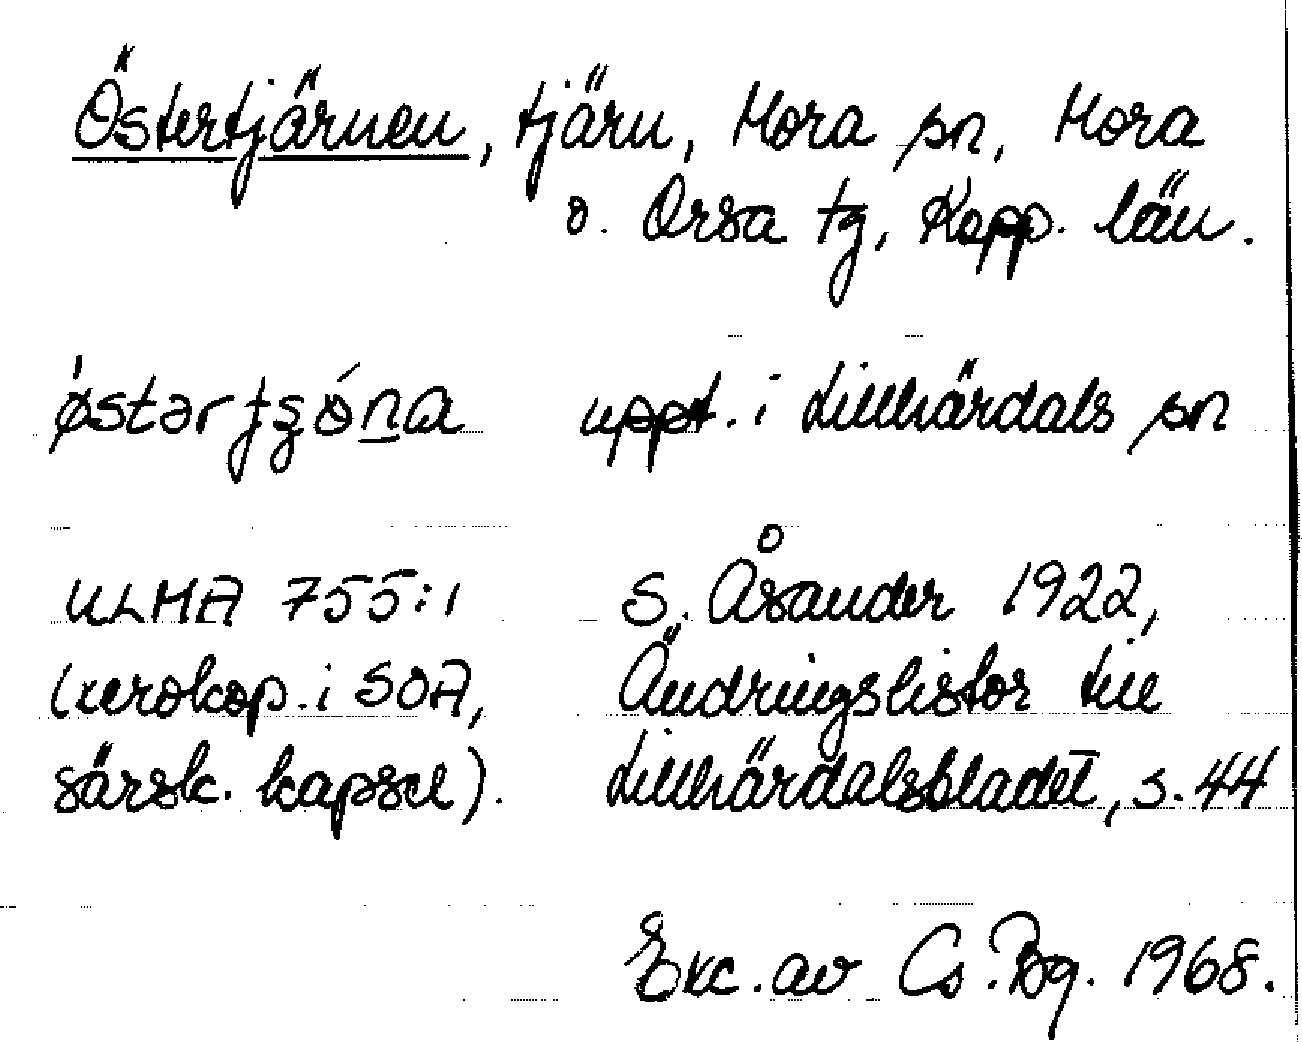 Östertjärnen, tjärn, Mora sn, Mora
o. Orsa tg, Kopp. län.
uppt. i Lillhärdals sn
ULMA 755:1 S. Åsander 1922,
(xerokop. i SOA, Ändringslistor till
särsk. kapsel). Lillhärdalsbladet, s. 44
Exc. av Cs. Bg. 1968.